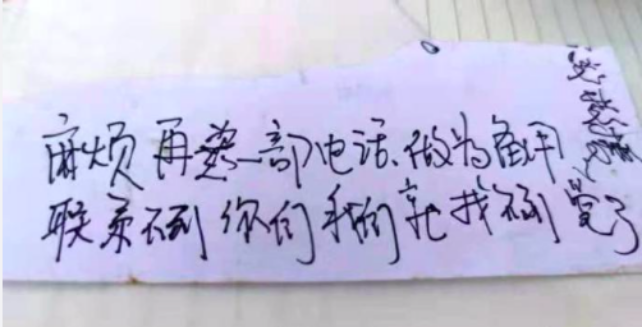 麻烦再装一部电话、做为备用
联系不到你们我们就找不到
了